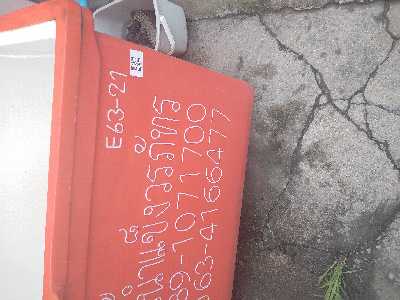 E63-21
น้ำแข็งวรภัทร
89-1071700
063-4166477